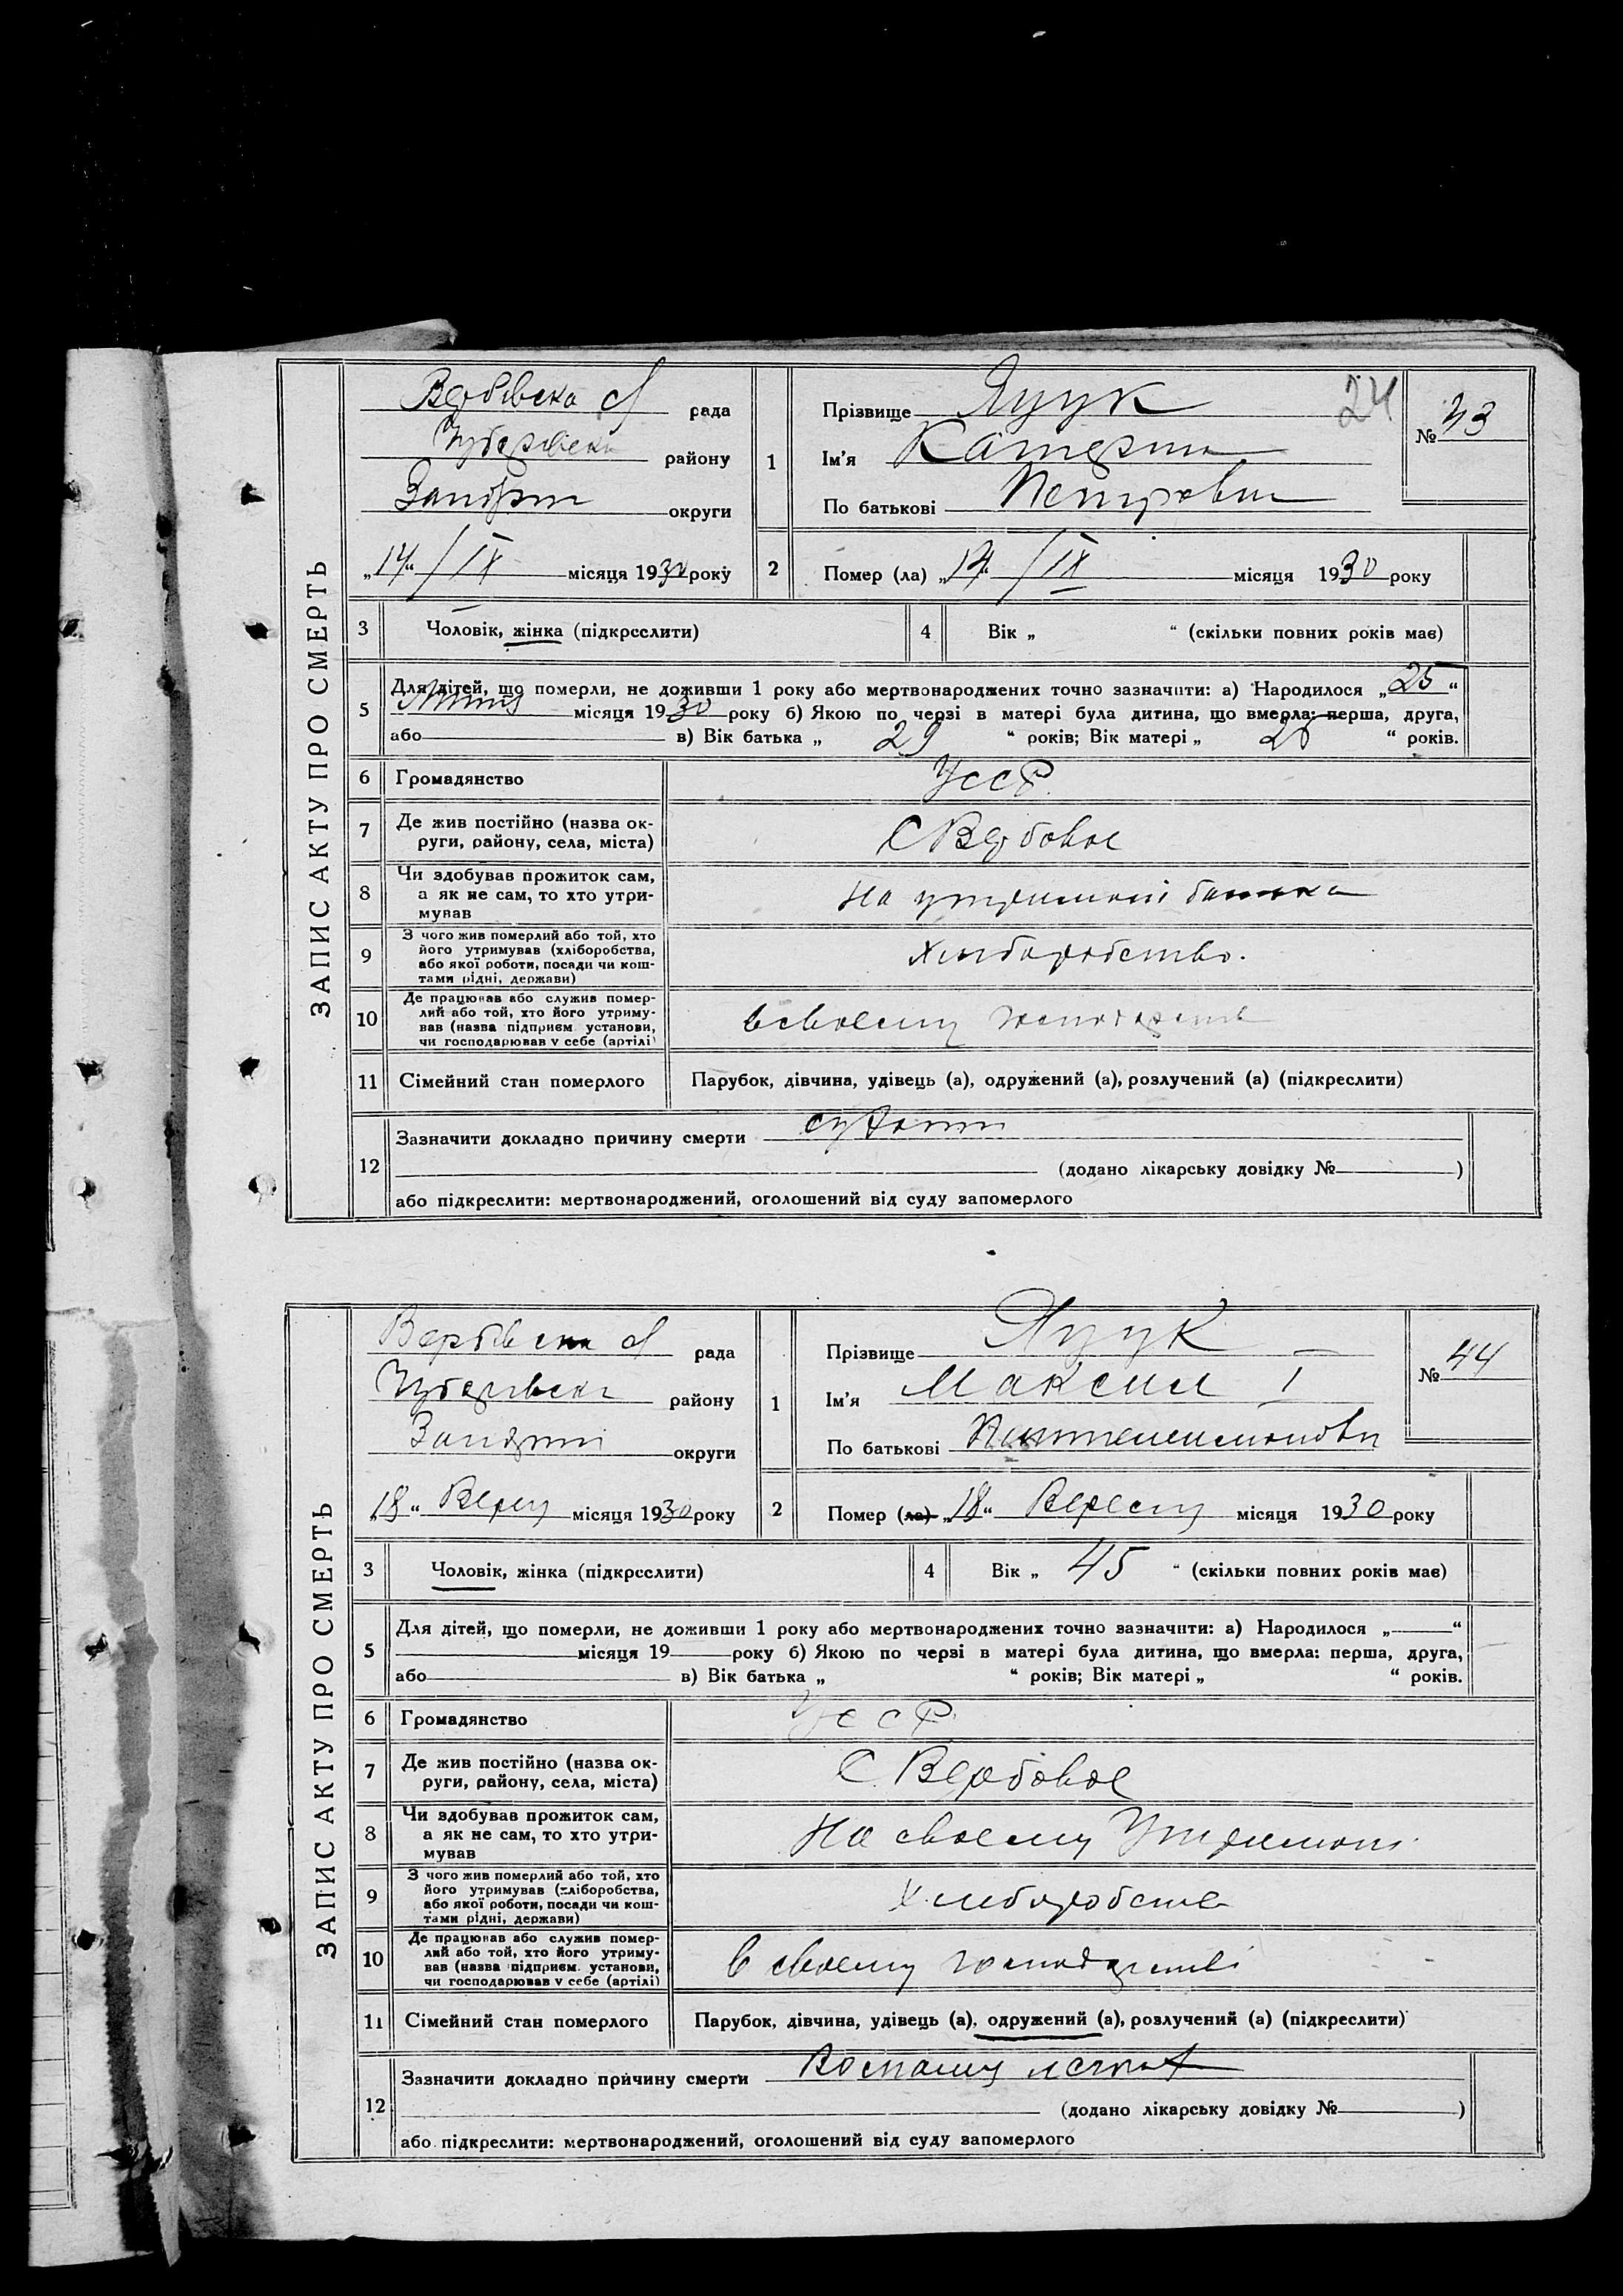 ЗАПИС АКТУ ПРО СМЕРТЬ
рада
району
округи
„14“ / IX місяця 1930 року
1
Прізвище
24
Ім'я Катерина
По батькові Петровна
№ 43
2
Помер (ла) „14“ / IX місяця 1930 року
3
Чоловік, жінка (підкреслити)
4
Вік „ “ (скільки повних років має)
5
Для дітей, що померли, не доживши 1 року або мертвонароджених точно зазначити: а) Народилося „25“
місяця 1930 року б) Якою по черзі в матері була дитина, що вмерла: перша, друга,
або в) Вік батька „29“ років; Вік матері „ “ років.
6
Громадянство
УССР.
7
Де жив постійно (назва ок-
руги, району, села, міста)
С Вербовое
8
Чи здобував прожиток сам,
а як не сам, то хто утри-
мував
На утримані батька
9
З чого жив померлий або той, хто
його утримував (хліборобства,
або якої роботи, посади чи кош-
тами рідні, держави)
Хлиборобство.
10
Де працював або служив помер-
лий або той, хто його утриму-
вав (назва підприєм. установи,
чи господарював у себе (артілі)
в своему господарстві
11
Сімейний стан померлого
Парубок, дівчина, удівець (а), одружений (а), розлучений (а) (підкреслити)
12
Зазначити докладно причину смерти
(додано лікарську довідку № )
або підкреслити: мертвонароджений, оголошений від суду запомерлого
ЗАПИС АКТУ ПРО СМЕРТЬ
рада
району
округи
„18“ місяця 1930 року
1
Прізвище
Ім'я Максим I
По батькові
№ 44
2
Помер (ла) „18“ місяця 1930 року
3
Чоловік, жінка (підкреслити)
4
Вік „45“ (скільки повних років має)
5
Для дітей, що померли, не доживши 1 року або мертвонароджених точно зазначити: а) Народилося „ “
місяця 19 року б) Якою по черзі в матері була дитина, що вмерла: перша, друга,
або в) Вік батька „ “ років; Вік матері „ “ років.
6
Громадянство
УССР
7
Де жив постійно (назва ок-
руги, району, села, міста)
С. Вербовое
8
Чи здобував прожиток сам,
а як не сам, то хто утри-
мував
На своему Утримані
9
З чого жив померлий або той, хто
його утримував (хліборобства,
або якої роботи, посади чи кош-
тами рідні, держави)
Хлиборобство
10
Де працював або служив помер-
лий або той, хто його утриму-
вав (назва підприєм. установи,
чи господарював у себе (артілі)
в своему господарстві
11
Сімейний стан померлого
Парубок, дівчина, удівець (а), одружений (а), розлучений (а) (підкреслити)
12
Зазначити докладно причину смерти
(додано лікарську довідку № )
або підкреслити: мертвонароджений, оголошений від суду запомерлого